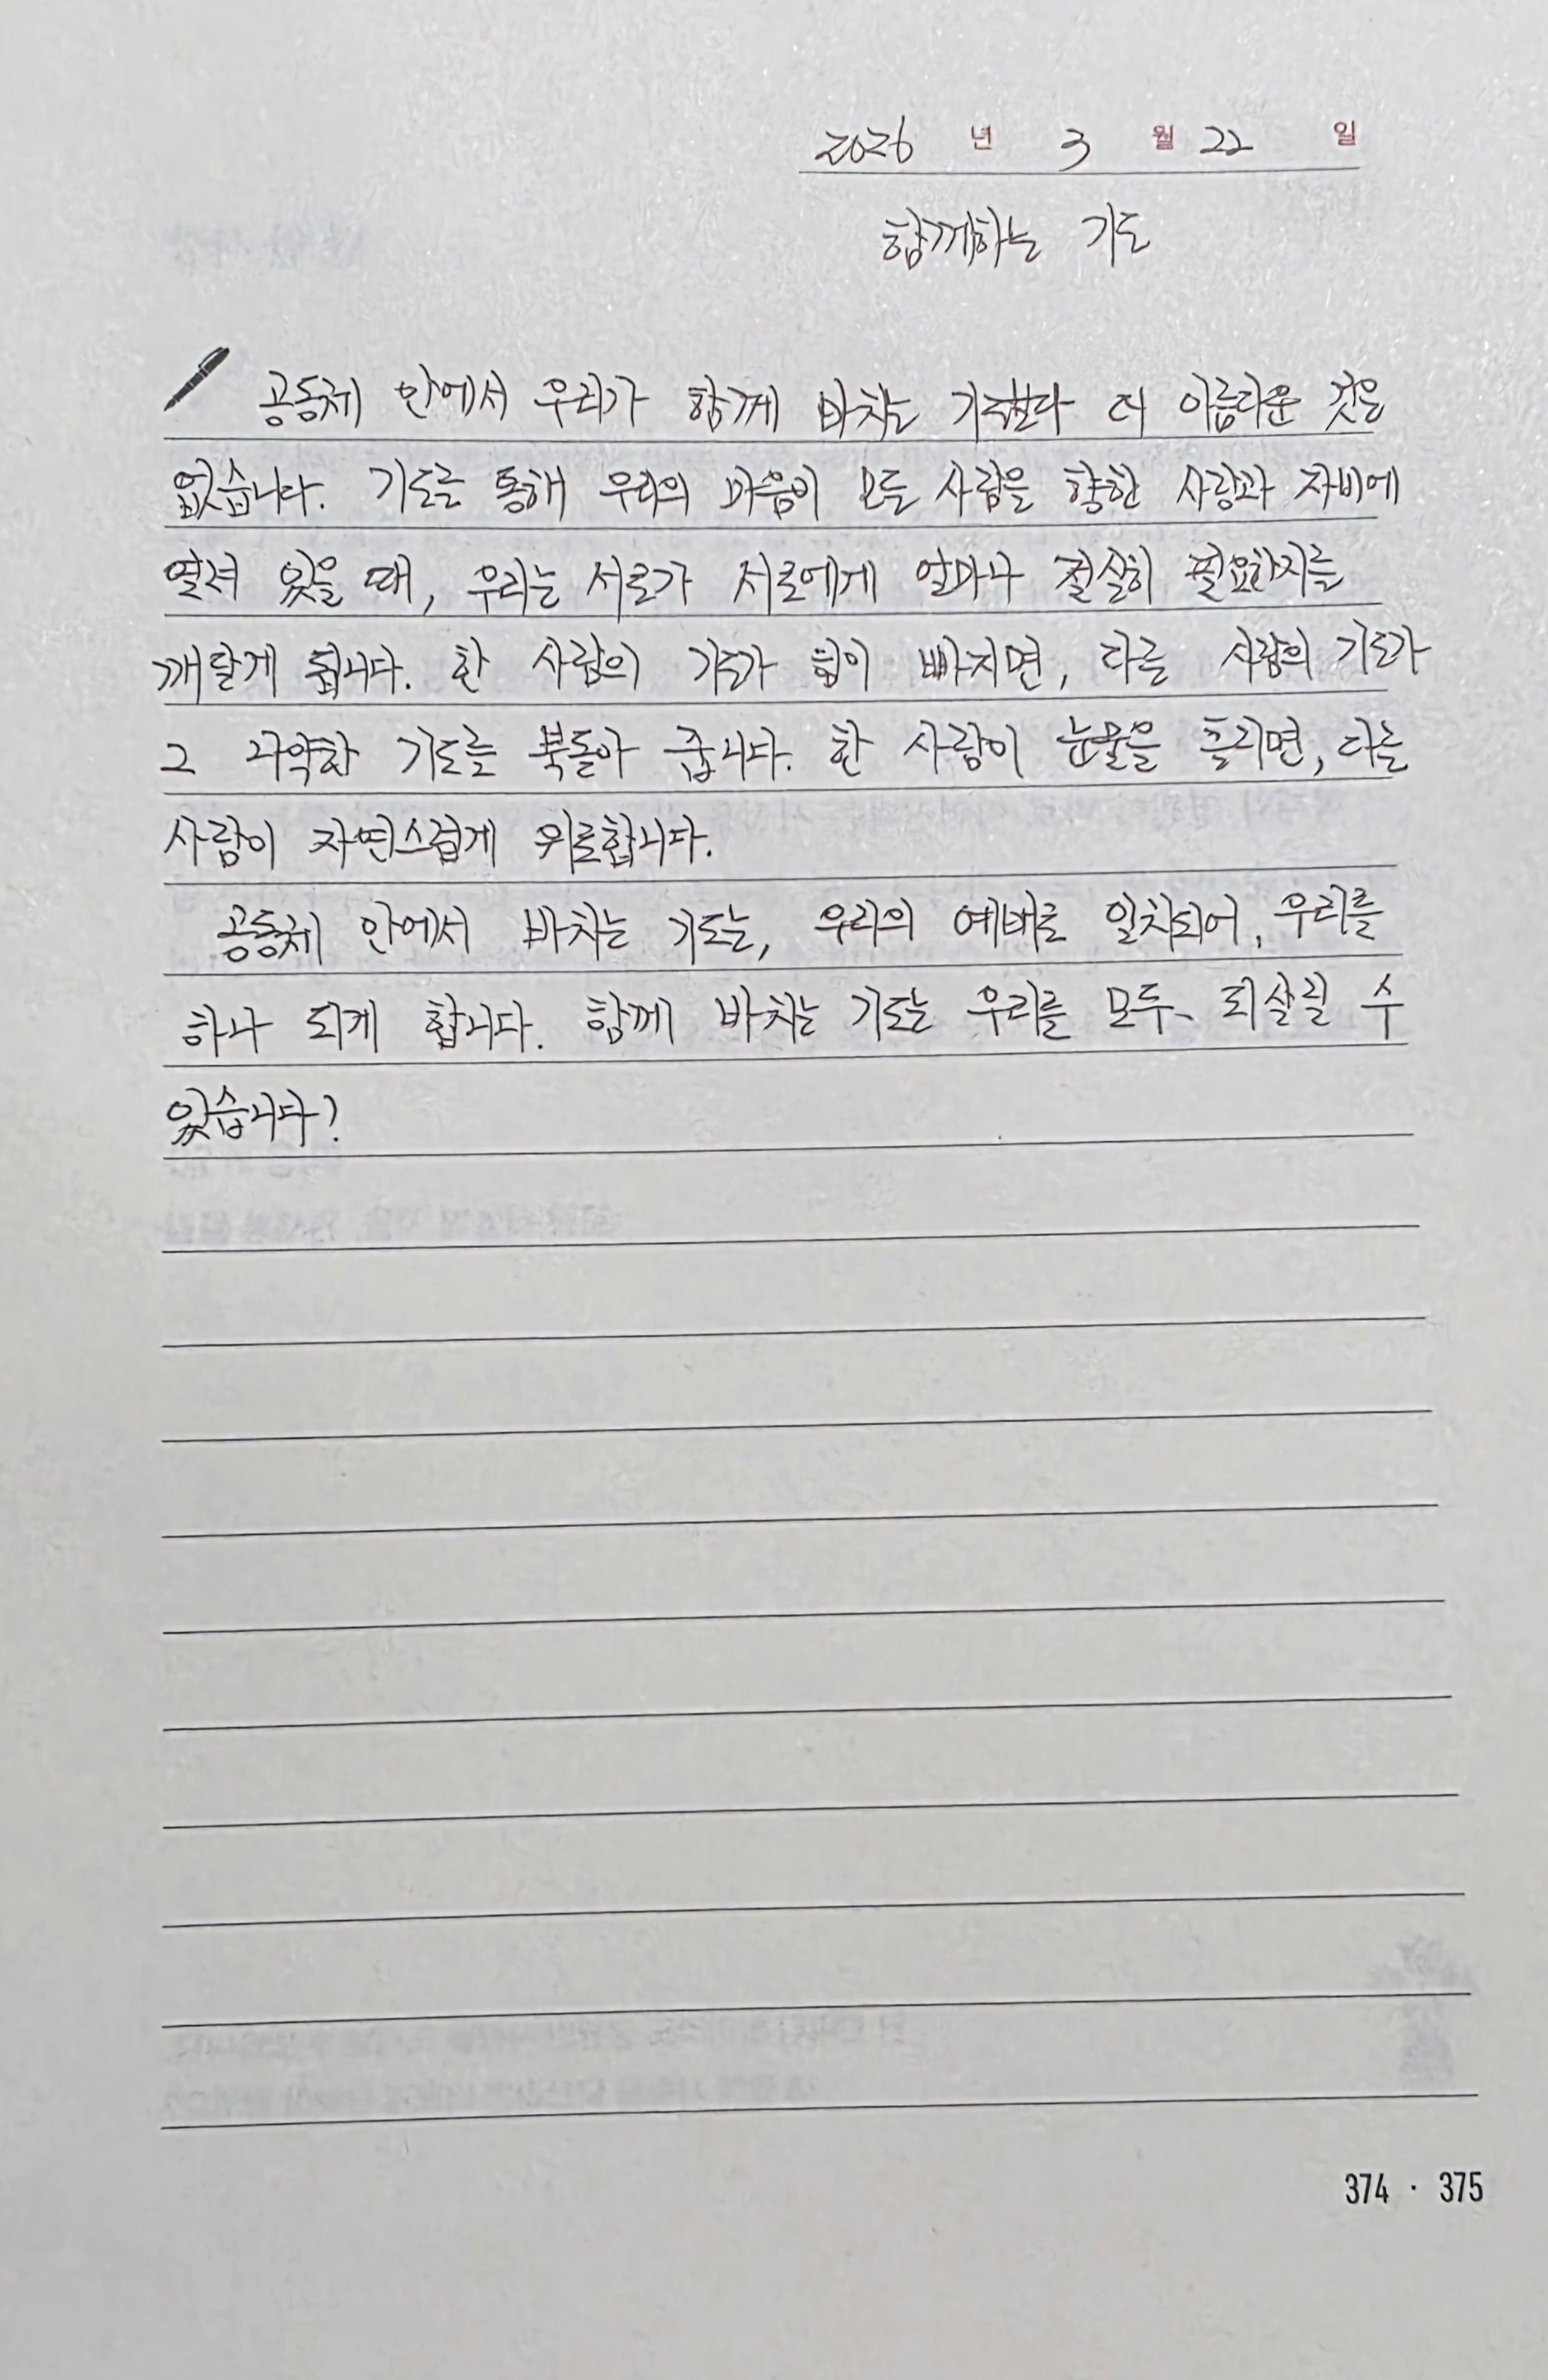 2026 년 3 월 22 일
함께하는 기도
공동체 안에서 우리가 함께 바치는 기도보다 더 아름다운 것은
없습니다. 기도를 통해 우리의 마음이 모든 사람을 향한 사랑과 자비에
열려 있을 때, 우리는 서로가 서로에게 얼마나 절실히 필요한지를
깨닫게 됩니다. 한 사람의 기도가 힘이 빠지면, 다른 사람의 기도가
그 나약한 기도를 북돋아 줍니다. 한 사람이 눈물을 흘리면, 다른
사람이 자연스럽게 위로합니다.
공동체 안에서 바치는 기도는, 우리의 예배로 일치되어, 우리를
하나 되게 합니다. 함께 바치는 기도는 우리를 모두 되살릴 수
있습니다?
374 · 375